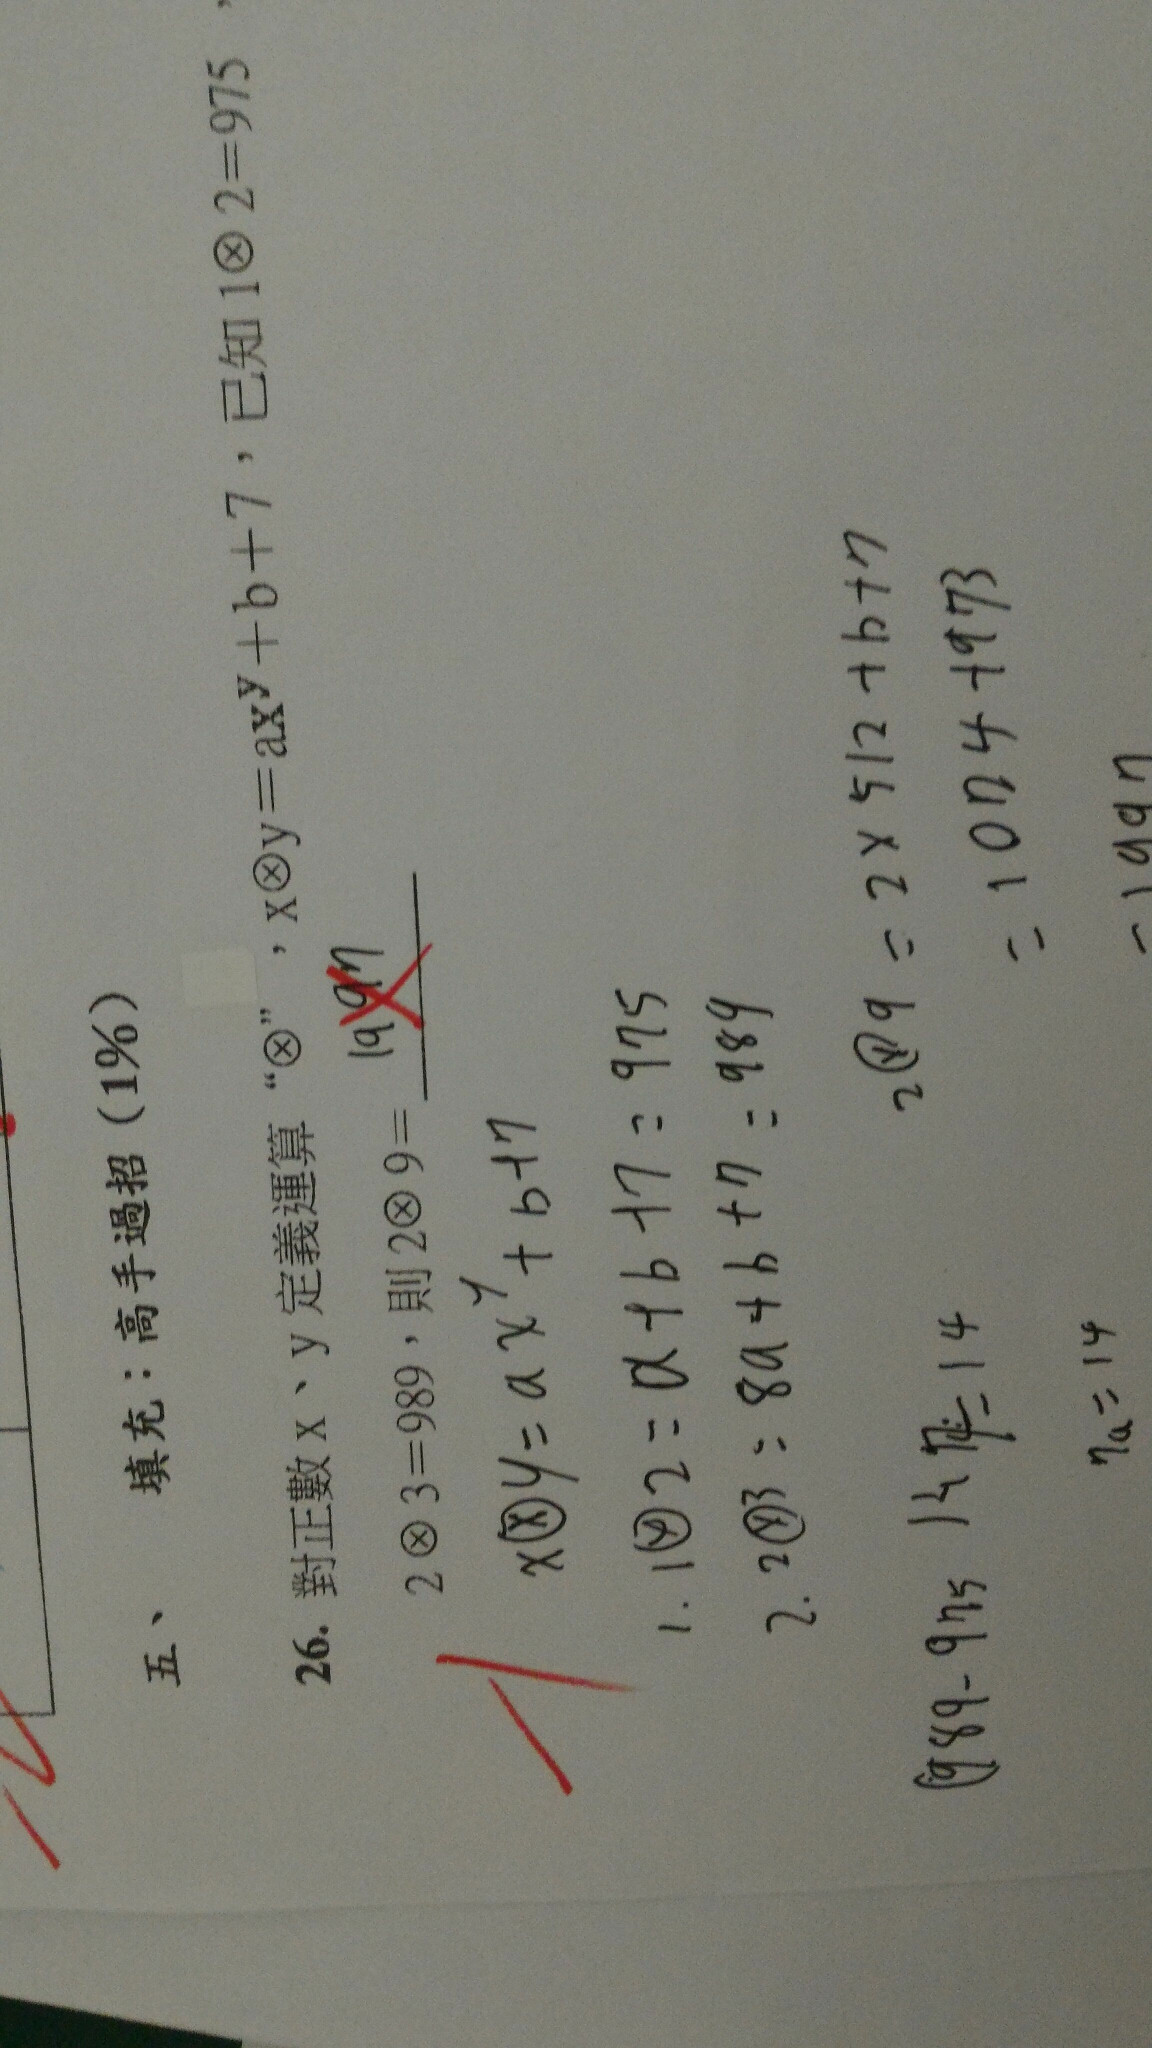 五、 填充：高手過招（1%）
26. 對正數 x、y 定義運算 “⊗”，x⊗y=axʸ+b+7，已知 1⊗2=975，
2⊗3=989，則 2⊗9= 1997
x⊗y=axʸ+b+7
1. 1⊗2=a+b+7=975
2. 2⊗3=8a+b+7=989
2⊗9=2×512+b+7
=1024+973
=1997
989-975
=14
7a=14